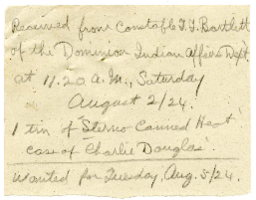 Received from Constable T. F. Bartlett
of the Dominion Indian Affairs Dept.
at 11.20 A.M., Saturday
August 2/24.
1 tin of "Sterno Canned Heat"
case of Charlie Douglas.
Wanted for Tuesday, Aug. 5/24.